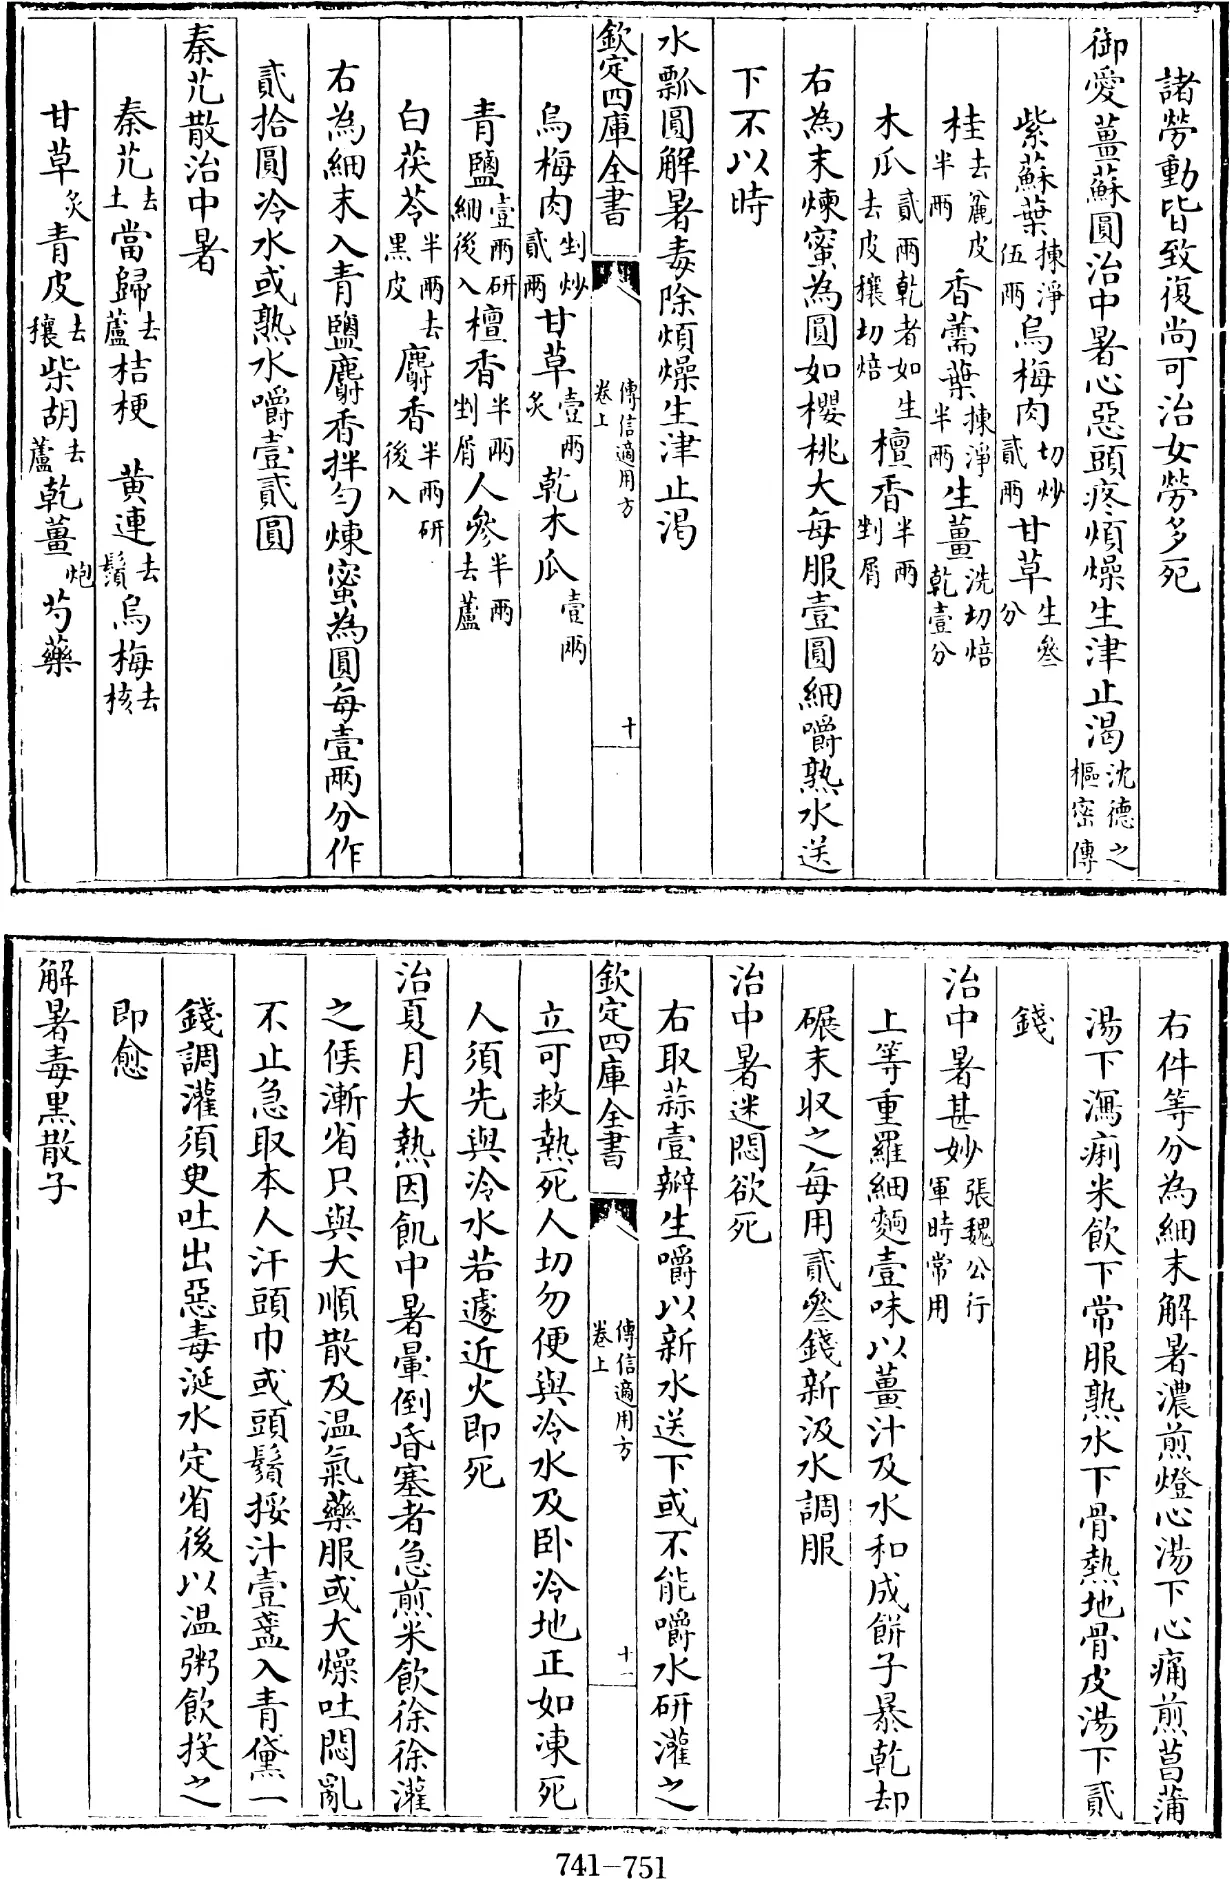 諸勞動皆致復尚可治女勞多死
御愛薑蘇圓治中暑心惡頭疼煩燥生津止渴沈德之樞密傳
紫蘇葉揀淨伍兩烏梅肉切炒貳兩甘草生叄分
桂去麄皮半兩香薷葉揀淨半兩生薑洗切焙乾壹分
木瓜貳兩乾者如生去皮穰切焙檀香半兩剉屑
右為末煉蜜為圓如櫻桃大每服壹圓細嚼熟水送
下不以時
水瓢圓解暑毒除煩燥生津止渴
欽定四庫全書 傳信適用方卷上 十
烏梅肉剉炒貳兩甘草壹兩炙乾木瓜壹兩
青鹽壹兩研細後入檀香半兩剉屑人參半兩去蘆
白茯苓半兩去黑皮麝香半兩研後入
右為細末入青鹽麝香拌勻煉蜜為圓每壹兩分作
貳拾圓冷水或熟水嚼壹貳圓
秦艽散治中暑
秦艽去土當歸去蘆桔梗 黄連去鬚烏梅去核
甘草炙青皮去穰柴胡去蘆乾薑炮芍藥
右件等分為細末解暑濃煎燈心湯下心痛煎菖蒲
湯下瀉痢米飲下常服熟水下骨熱地骨皮湯下貳
錢
治中暑甚妙張魏公行軍時常用
上等重羅細麵壹味以薑汁及水和成餅子暴乾却
碾末収之每用貳叄錢新汲水調服
治中暑迷悶欲死
右取蒜壹瓣生嚼以新水送下或不能嚼水研灌之
欽定四庫全書 傳信適用方卷上 十一
立可救熱死人切勿便與冷水及卧冷地正如凍死
人須先與冷水若遽近火即死
治夏月大熱因飢中暑暈倒昏塞者急煎米飲徐徐灌
之候漸省只與大順散及温氣藥服或大燥吐悶亂
不止急取本人汗頭巾或頭鬚挼汁壹盞入青黛一
錢調灌須臾吐出惡毒涎水定省後以温粥飲投之
即愈
解暑毒黑散子
741-751